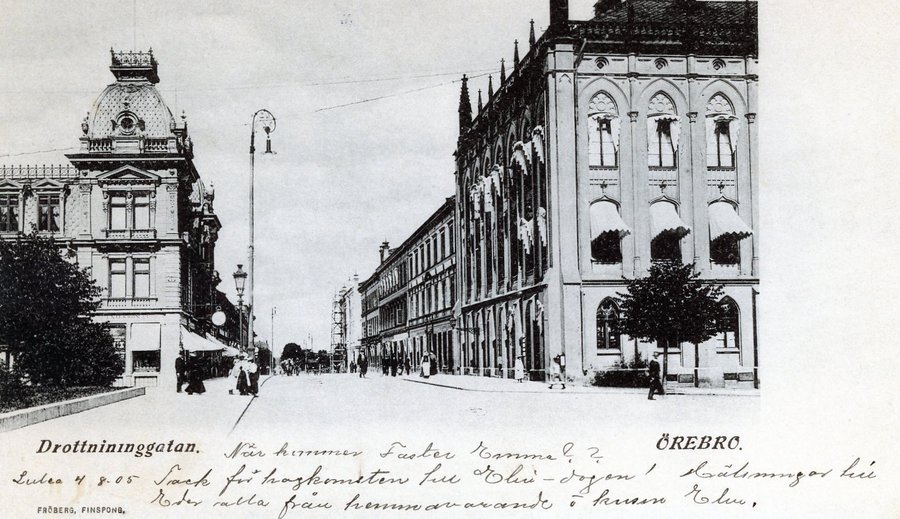 Drottnininggatan. När kommer Faster Emma? ? ÖREBRO.
Lulea 4 8-05 Tack för hågkomsten till Elin-dagen! Hälsningar till
Eder alla från hemmavarande o kusin Elin.
FRÖBERG, FINSPONG.